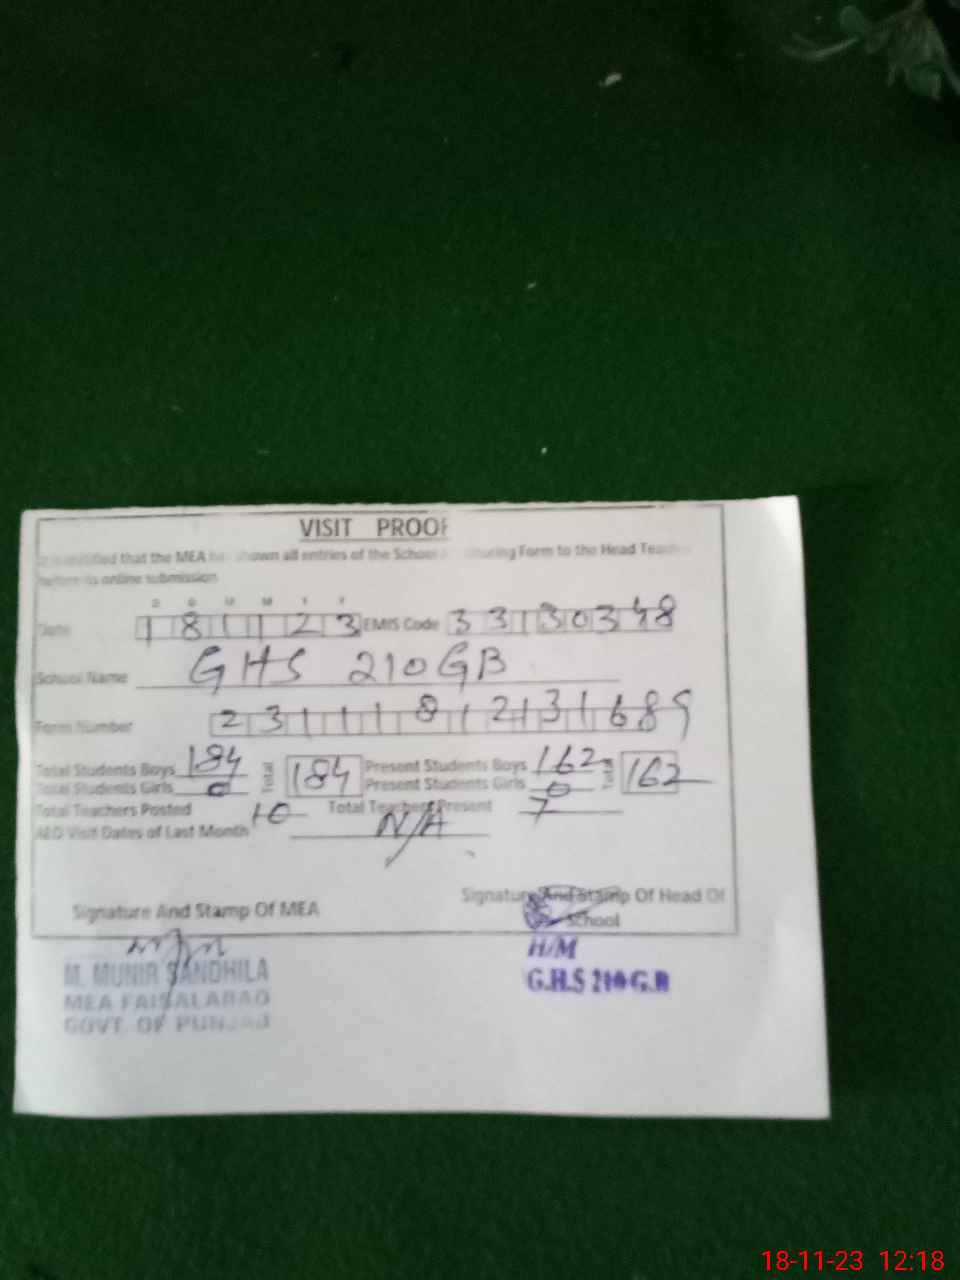 VISIT PROOF
that the MEA has shown all entries of the School Form to the Head Teacher
before its online submission
D D M M Y Y
Date 181123 EMIS Code 33130348
School Name GHS 210GB
Form Number
Total Students Boys 184 Total 184 Present Students Boys 162 Total 162
Total Students Girls 0 Present Students Girls 0
Total Teachers Posted 10 Total Teachers Present 7
AEO Visit Dates of Last Month N/A
Signature And Stamp Of MEA Signature And Stamp Of Head Of School
M. MUNIR SANDHILA
MEA FAISALABAD
GOVT. OF PUNJAB
H/M
G.H.S 210 G.B
18-11-23 12:18